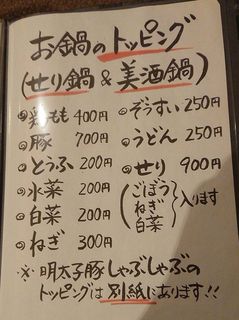 お鍋のトッピング
(せり鍋 & 美酒鍋)
鶏もも 400円
豚 700円
とうふ 200円
水菜 200円
白菜 200円
ねぎ 300円
ぞうすい 250円
うどん 250円
せり 900円
(ごぼう
ねぎ
白菜) 入ります
※ 明太子豚しゃぶしゃぶの
トッピングは別紙にあります!!